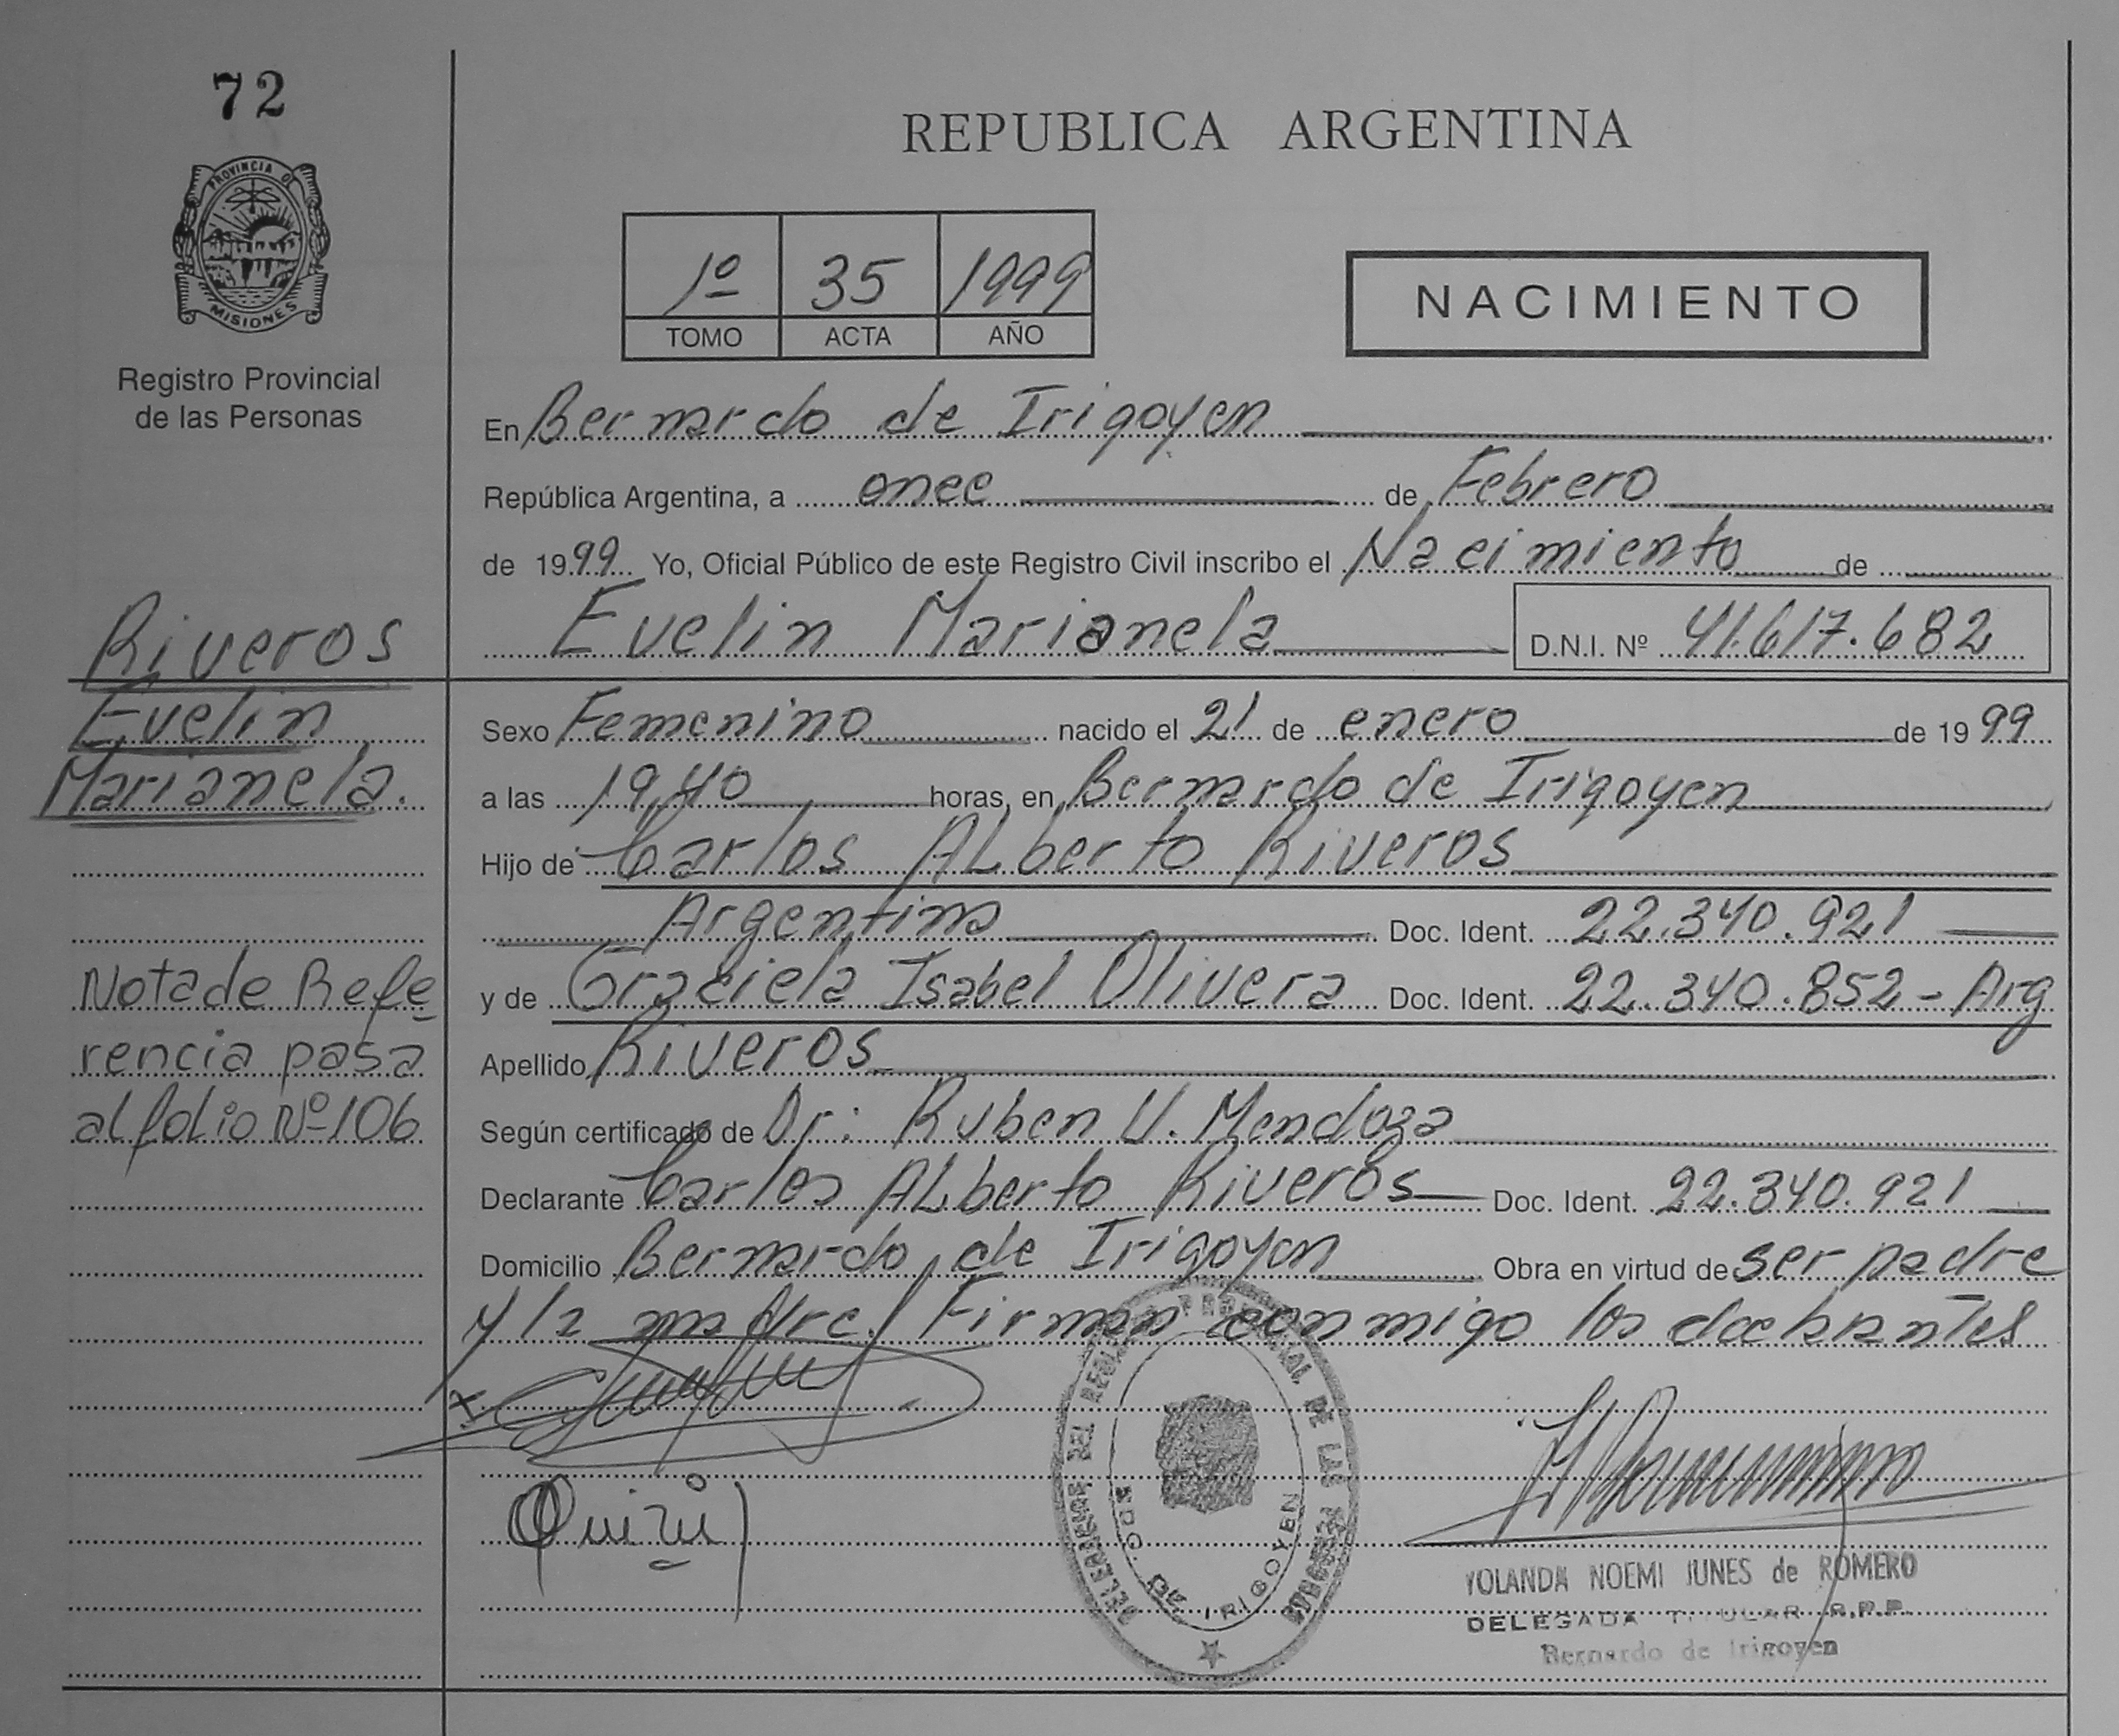 72
PROVINCIA DE
MISIONES
Registro Provincial
de las Personas
Riveros
Evelin
Marianela.
Nota de Refe
rencia pasa
al folio Nº 106
REPUBLICA ARGENTINA
1º 35 1999
TOMO ACTA AÑO
NACIMIENTO
En Bernardo de Irigoyen
República Argentina, a once de Febrero
de 1999 Yo, Oficial Público de este Registro Civil inscribo el Nacimiento de
Evelin Marianela D.N.I. Nº 41.617.682
Sexo Femenino nacido el 21 de enero de 1999
a las 19,40 horas, en Bernardo de Irigoyen
Hijo de Carlos ALberto Riveros
Argentino Doc. Ident. 22.340.921
y de Graciela Isabel Olivera Doc. Ident. 22.340.852 - Arg
Apellido Riveros
Según certificado de Dr: Ruben V. Mendoza
Declarante Carlos ALberto Riveros Doc. Ident. 22.340.921
Domicilio Bernardo de Irigoyen Obra en virtud de ser padre
y la madre. Firman conmigo los declarantes
BDO. DE IRIGOYEN
YOLANDA NOEMI JUNES de ROMERO
DELEGADA TITULAR R.P.P.
Bernardo de Irigoyen